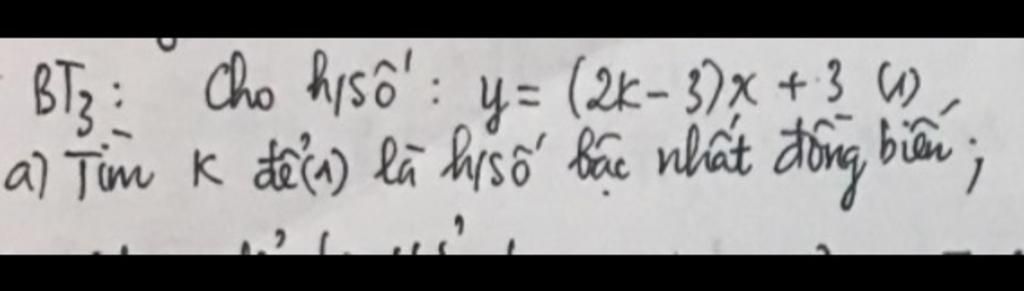 BT3: Cho h/số: y = (2k - 3)x + 3 (1)
a) Tìm K để (1) là h/số bậc nhất đồng biến;